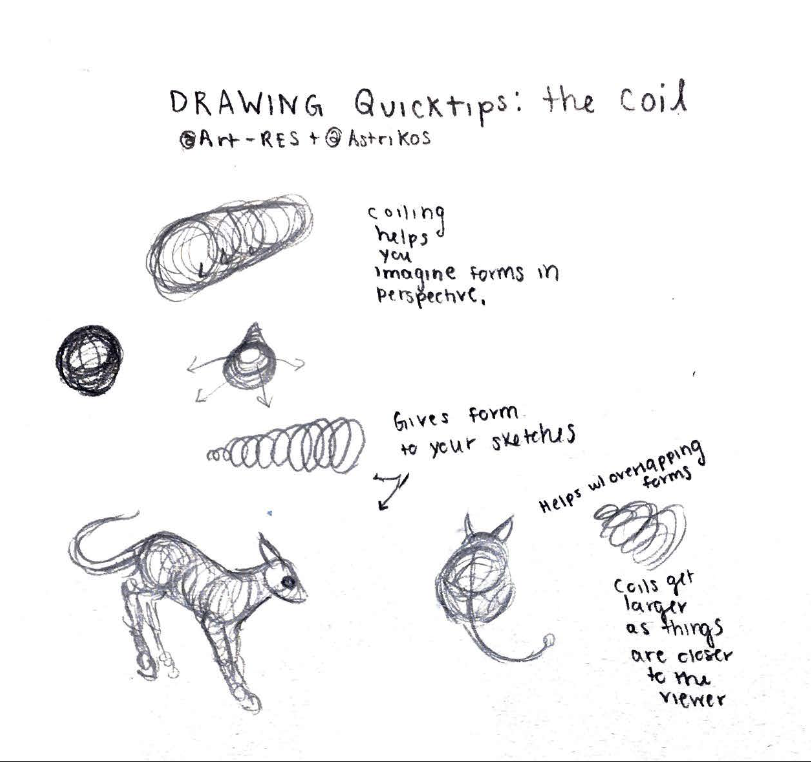 DRAWING Quicktips: the coil
@Art-RES + @Astrikos
coiling
helps
you
imagine forms in
perspective.
Gives form
to your sketches
Helps w/ overlapping
forms
Coils get
larger
as things
are closer
to the
viewer